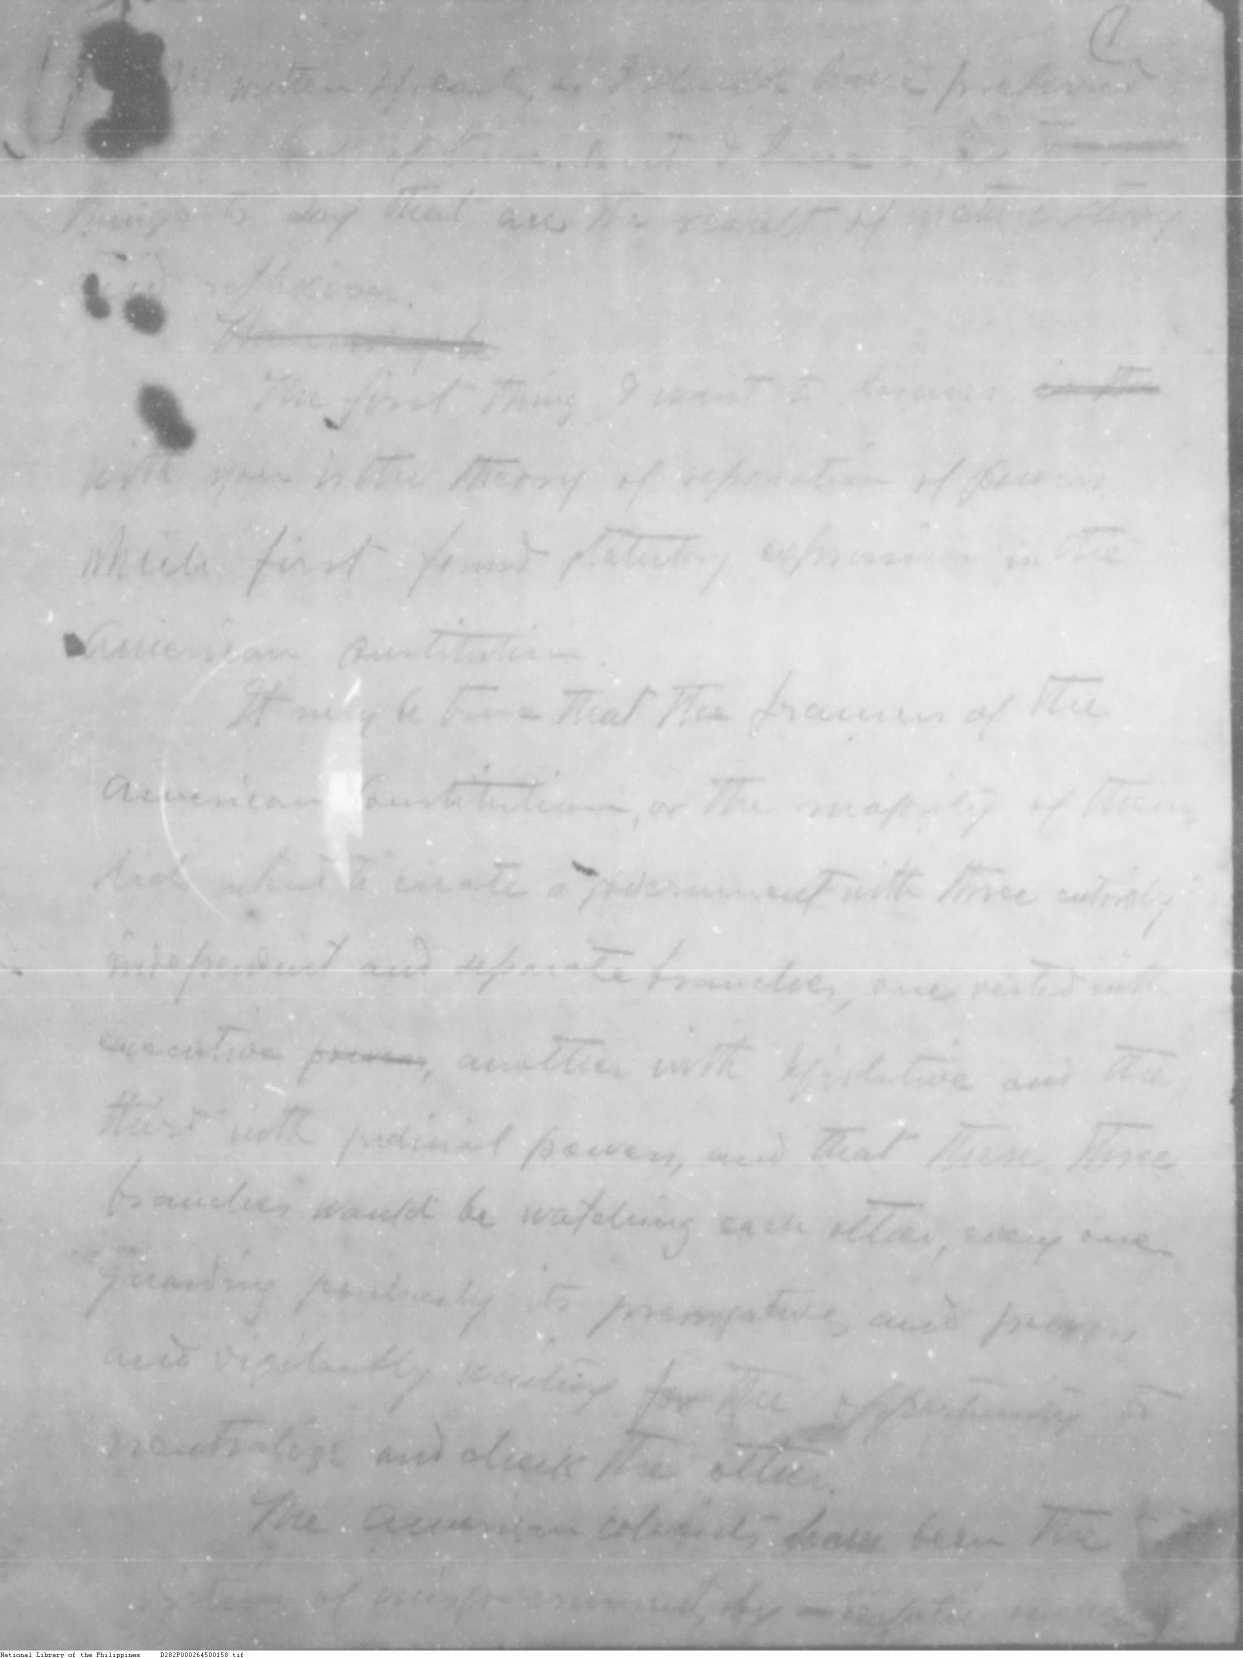 written speech, as I should have preferred
things to say that are the result of mature study
and reflexion.
The first thing I want to discuss in the
with you is the theory of separation of powers
which first found statutory expression in the
American constitution.
It may be true that the framers of the
American Constitution, or the majority of them,
did want to create a government with three entirely
independent and separate branches, one vested with
executive powers, another with legislative and the
third with judicial powers, and that these three
branches would be watching each other, every one
guarding jealously its prerogatives and powers
and vigilantly waiting for the opportunity to
neutralize and check the other.
The American colonists have been the
of misgovernment, by
National Library of the Philippines D282P000264500158.tif